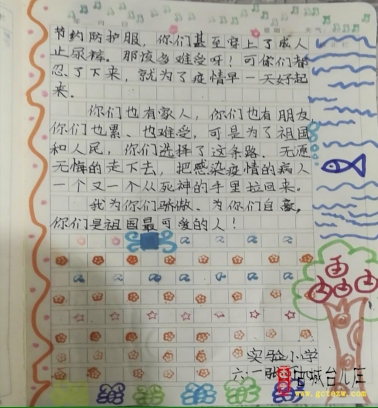 节约防护服，你们甚至穿上了成人
止尿裤。那该多难受呀！可你们都
忍了下来，就为了疫情早一天好起
来。
你们也有家人，你们也有朋友，
你们也累、也难受，可是为了祖国
和人民，你们选择了这条路、无怨
无悔的走下去，把感染疫情的病人
一个又一个从死神的手里拉回来。
我为你们骄傲、为你们自豪，
你们是祖国最可爱的人！
实验小学
六·一
古城台儿庄
www.gctezw.com